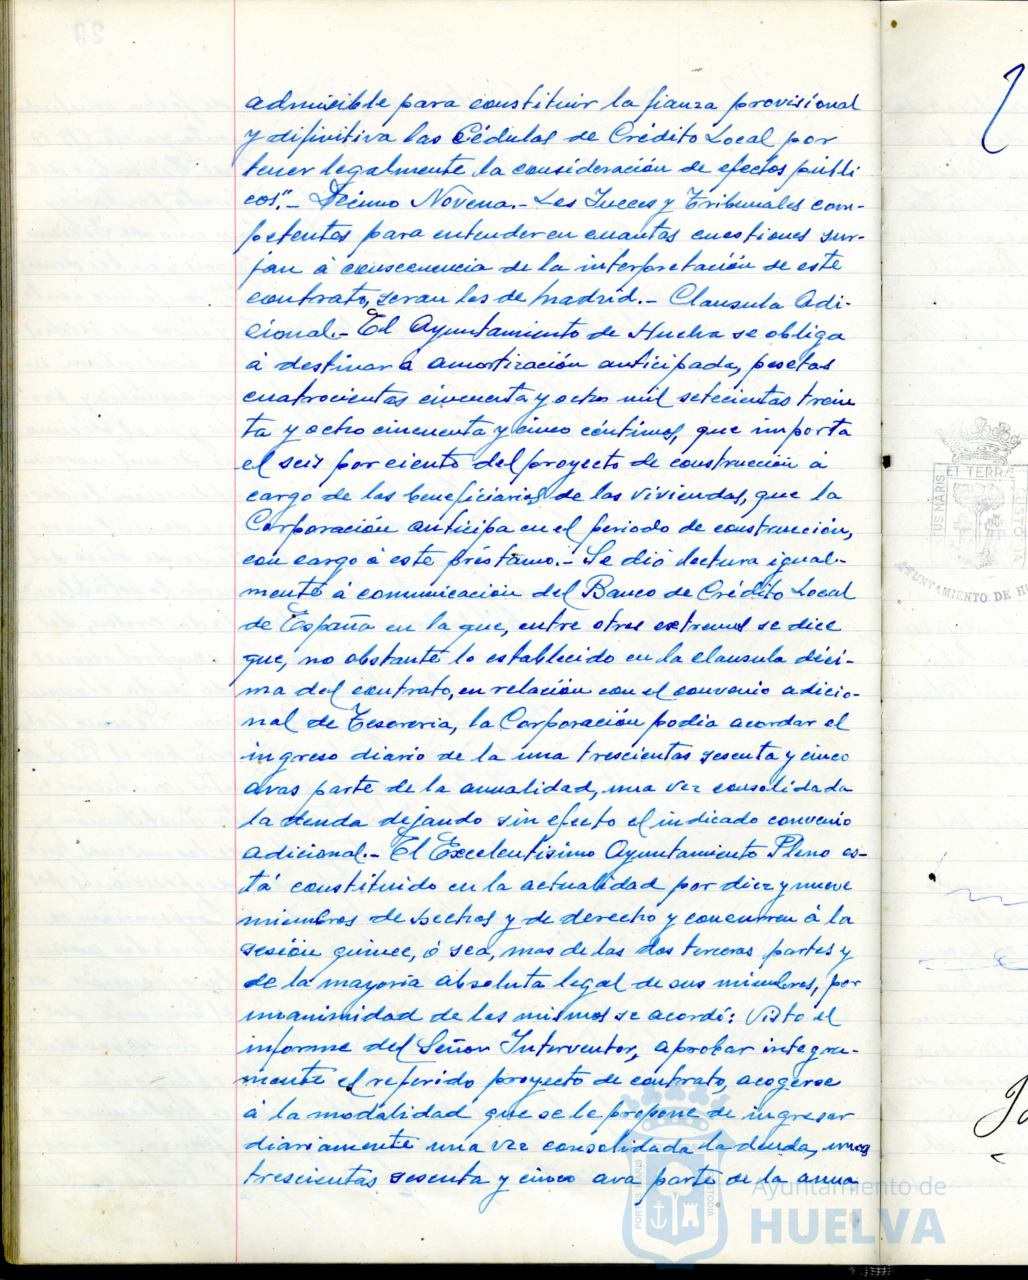 admisible para constituir la fianza provisional
y difinitiva las Cédulas de Crédito Local por
tener legalmente la consideración de efectos públi
cos".- Décimo Novena.- Los Jueces y Tribunales com-
petentes para entender en cuantas cuestiones sur-
jan á consecuencia de la interpretación de este
contrato, seran los de Madrid.- Clausula Adi-
cional.- El Ayuntamiento de Huelva se obliga
á destinar á amortización anticipada, pesetas
cuatrocientas cincuenta y ocho mil setecientas trein
ta y ocho cincuenta y cinco céntimos, que importa
el seis por ciento del proyecto de construcción á
cargo de los beneficiarios de las viviendas, que la
Corporación anticipa en el periodo de construcción,
con cargo á este préstamo.- Se dió lectura igual-
mente á comunicación del Banco de Crédito Local
de España en la que, entre otros extremos se dice
que, no obstante lo establecido en la clausula déci-
ma del contrato, en relación con el convenio adicio-
nal de Tesoreria, la Corporación podia acordar el
ingreso diario de la una trescientas sesenta y cinco
avas parte de la anualidad, una vez consolidada
la deuda dejando sin efecto el indicado convenio
adicional.- El Excelentisimo Ayuntamiento Pleno es-
tá constituido en la actualidad por diez y nueve
miembros de hechos y de derecho y concurren á la
sesión quince, ó sea, mas de las dos terceras partes y
de la mayoria absoluta legal de sus miembros, por
unanimidad de los mismos se acordó: Visto el
informe del Señor Interventor, aprobar integra-
mente el referido proyecto de contrato, acogerse
á la modalidad que se le propone de ingresar
diariamente una vez consolidada la deuda, una
trescientas sesenta y cinco ava parte de la anua
ET TERRA
AYUNTAMIENTO DE HU
Ayuntamiento de
HUELVA
PORTUS MARIS
CUSTODIA